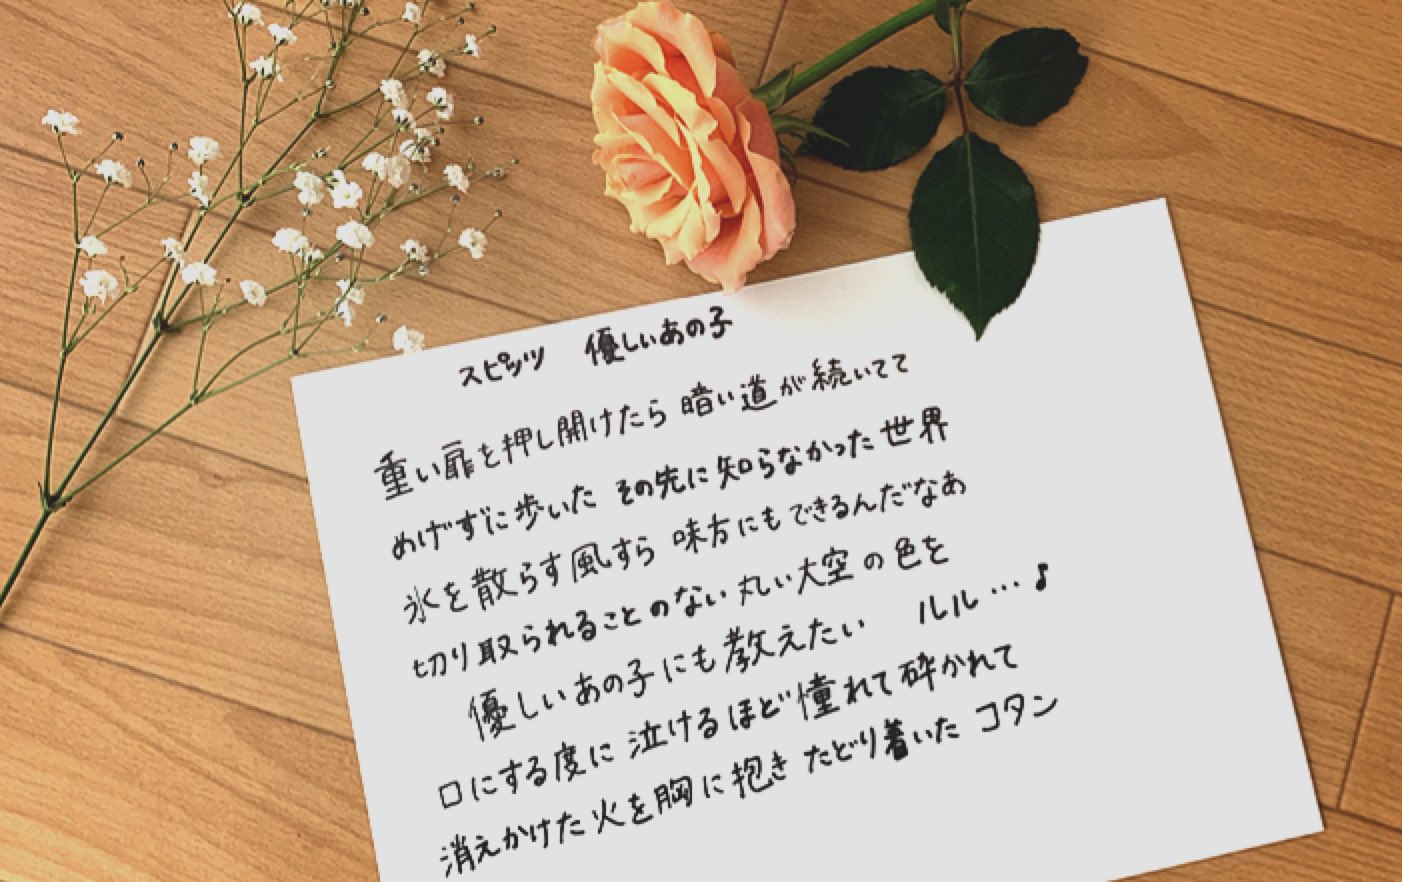 スピッツ 優しいあの子
重い扉を押し開けたら 暗い道が続いてて
めげずに歩いた その先に 知らなかった世界
氷を散らす風すら 味方にもできるんだなあ
切り取られることのない 丸い大空の色を
優しいあの子にも教えたい ルル…♪
口にする度に 泣けるほど 憧れて 砕かれて
消えかけた火を胸に抱き たどり着いた コタン